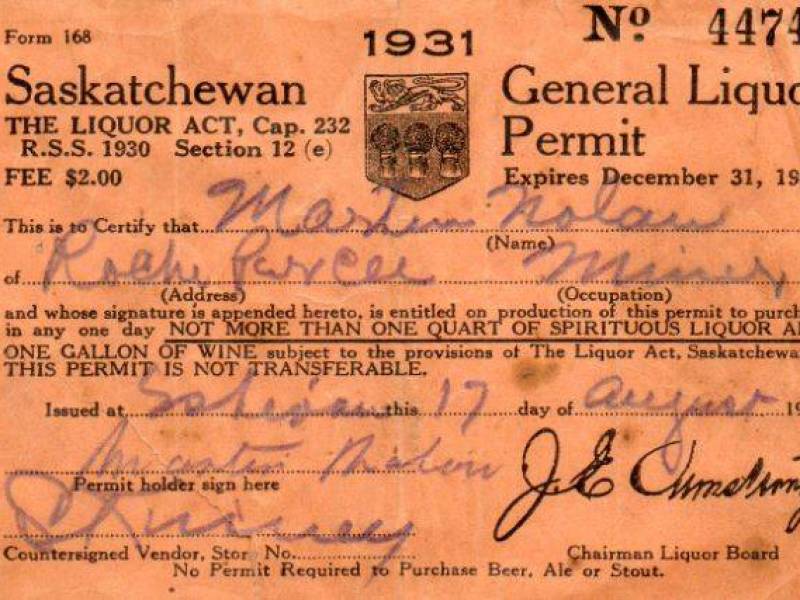 Form 168
1931
Nº 4474
Saskatchewan
General Liquo
THE LIQUOR ACT, Cap. 232
R.S.S. 1930 Section 12 (e)
Permit
FEE $2.00
Expires December 31, 19
This is to Certify that Martin Nolan
(Name)
of Roche Percee Miner
(Address) (Occupation)
and whose signature is appended hereto, is entitled on production of this permit to purch
in any one day NOT MORE THAN ONE QUART OF SPIRITUOUS LIQUOR A
ONE GALLON OF WINE subject to the provisions of The Liquor Act, Saskatchewa
THIS PERMIT IS NOT TRANSFERABLE.
Issued at Estevan this 17 day of August 19
Martin
Permit holder sign here
Countersigned Vendor, Stor No.
Chairman Liquor Board
No Permit Required to Purchase Beer, Ale or Stout.